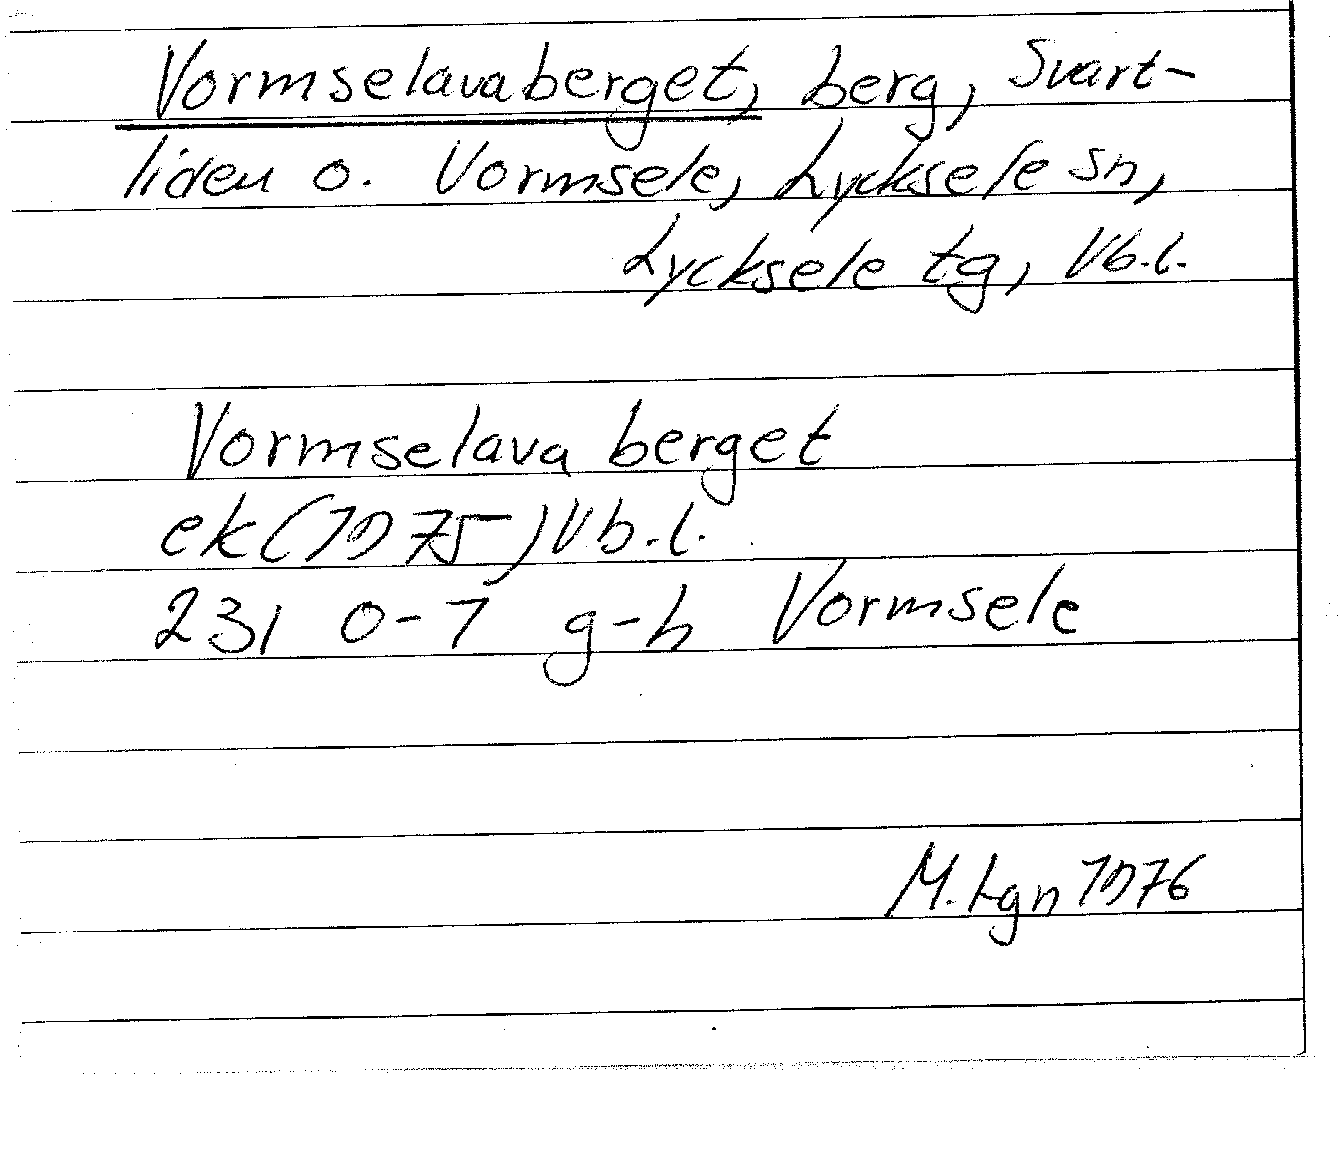 Vormselavaberget, berg, Svart-
liden o. Vormsele, Lycksele sn,
Lycksele tg, Vb.l.
Vormselava berget
ek(1975)Vb.l.
231 0-1 g-h Vormsele
M. Lgn 1976